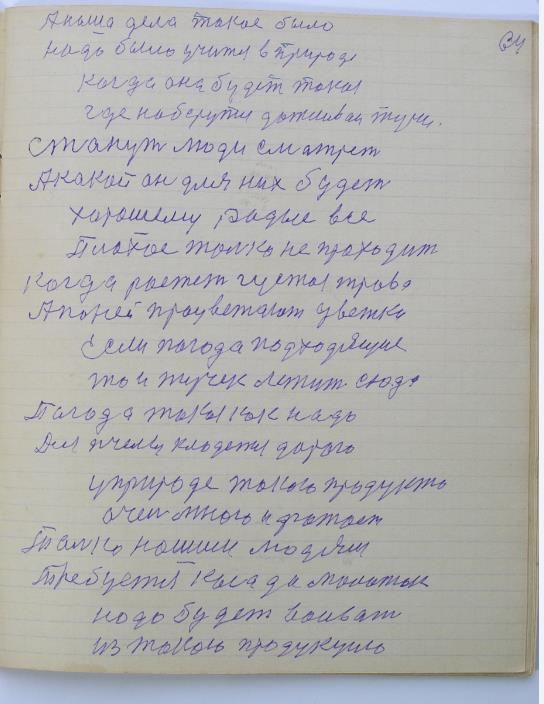 64
Анаша дела такое было
надо было учится в природе
когда она будет такая
где наберутся дожжевая тучи.
Станут люди сматрет
Акакой он для них будет
харашему радые все
Плахое толко не праходит
Когда растет густая трава
Апоней працветают цветки
Если погода подходящие
то и жучек летит сюда
Пагода такая как надо
Для пчелы кладется дорого
уприроде такого продукта
очен много и хватает
Толко нашим людям
Требуется коса да молаток
надо будет воеват
из такою продукцию